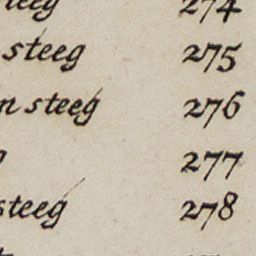 steeg 274
steeg 275
n steeg 276
277
steeg 278